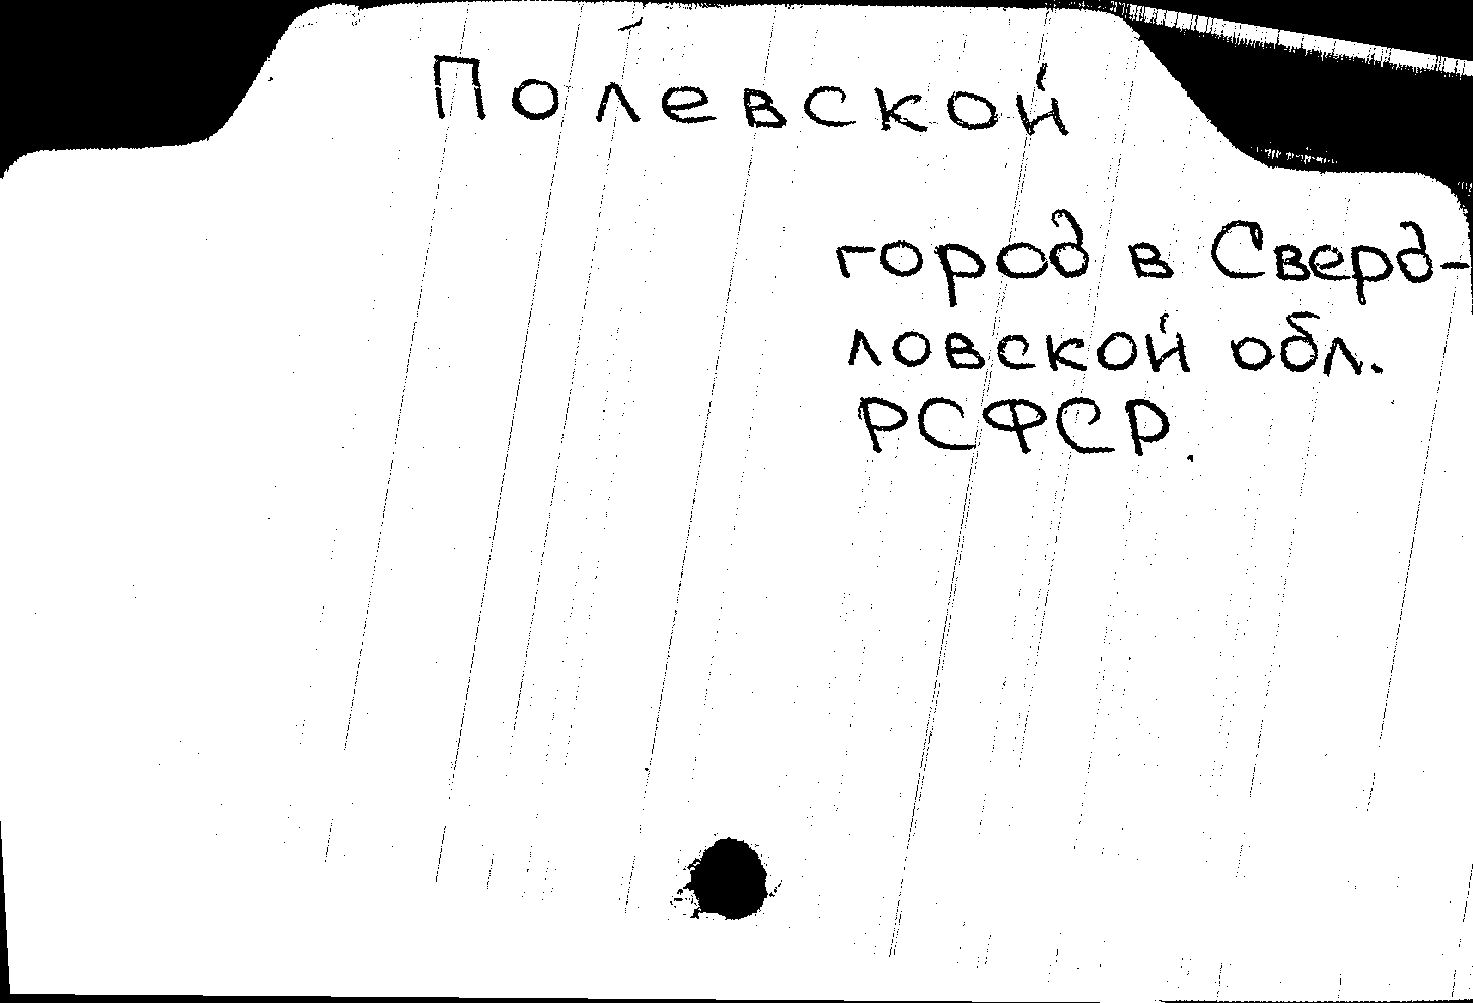 Полевской
город в Сверд-
ловской обл.
РСФСР.